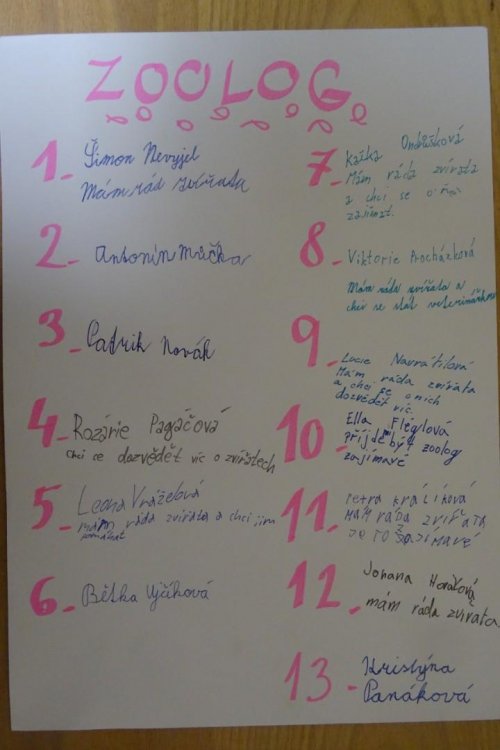 ZOOLOG
1- Šimon Nevyjel
Mám rád zvířada
2- Antonín Mička
3- Padrik Novák
4- Rozárie Pagáčová
Chci se dozvědět víc o zvířatech
5- Leona Vnážebová
mám ráda zvířata a chci jim
pomáhat
6- Bětka Vyčíková
7- Kačka Ondrůšková
Mám ráda zvířata
a chci se o ně
zajímat.
8- Viktorie Procházková
Mám ráda zvířata a
chci se stát veterinářkou
9- Lucie Navrátilová
Mám ráda zvířata
a chci se o nich
dozvědět víc
10- Ella Fléglová
příjde mi být zoolog
zajímavé
11- Petra Králíková
MÁM RÁDA ZVÍŘATA
JE TO ZAJÍMAVÉ
12- Johana Horáková
mám ráda zvířata
13- Kristýna
Panáková